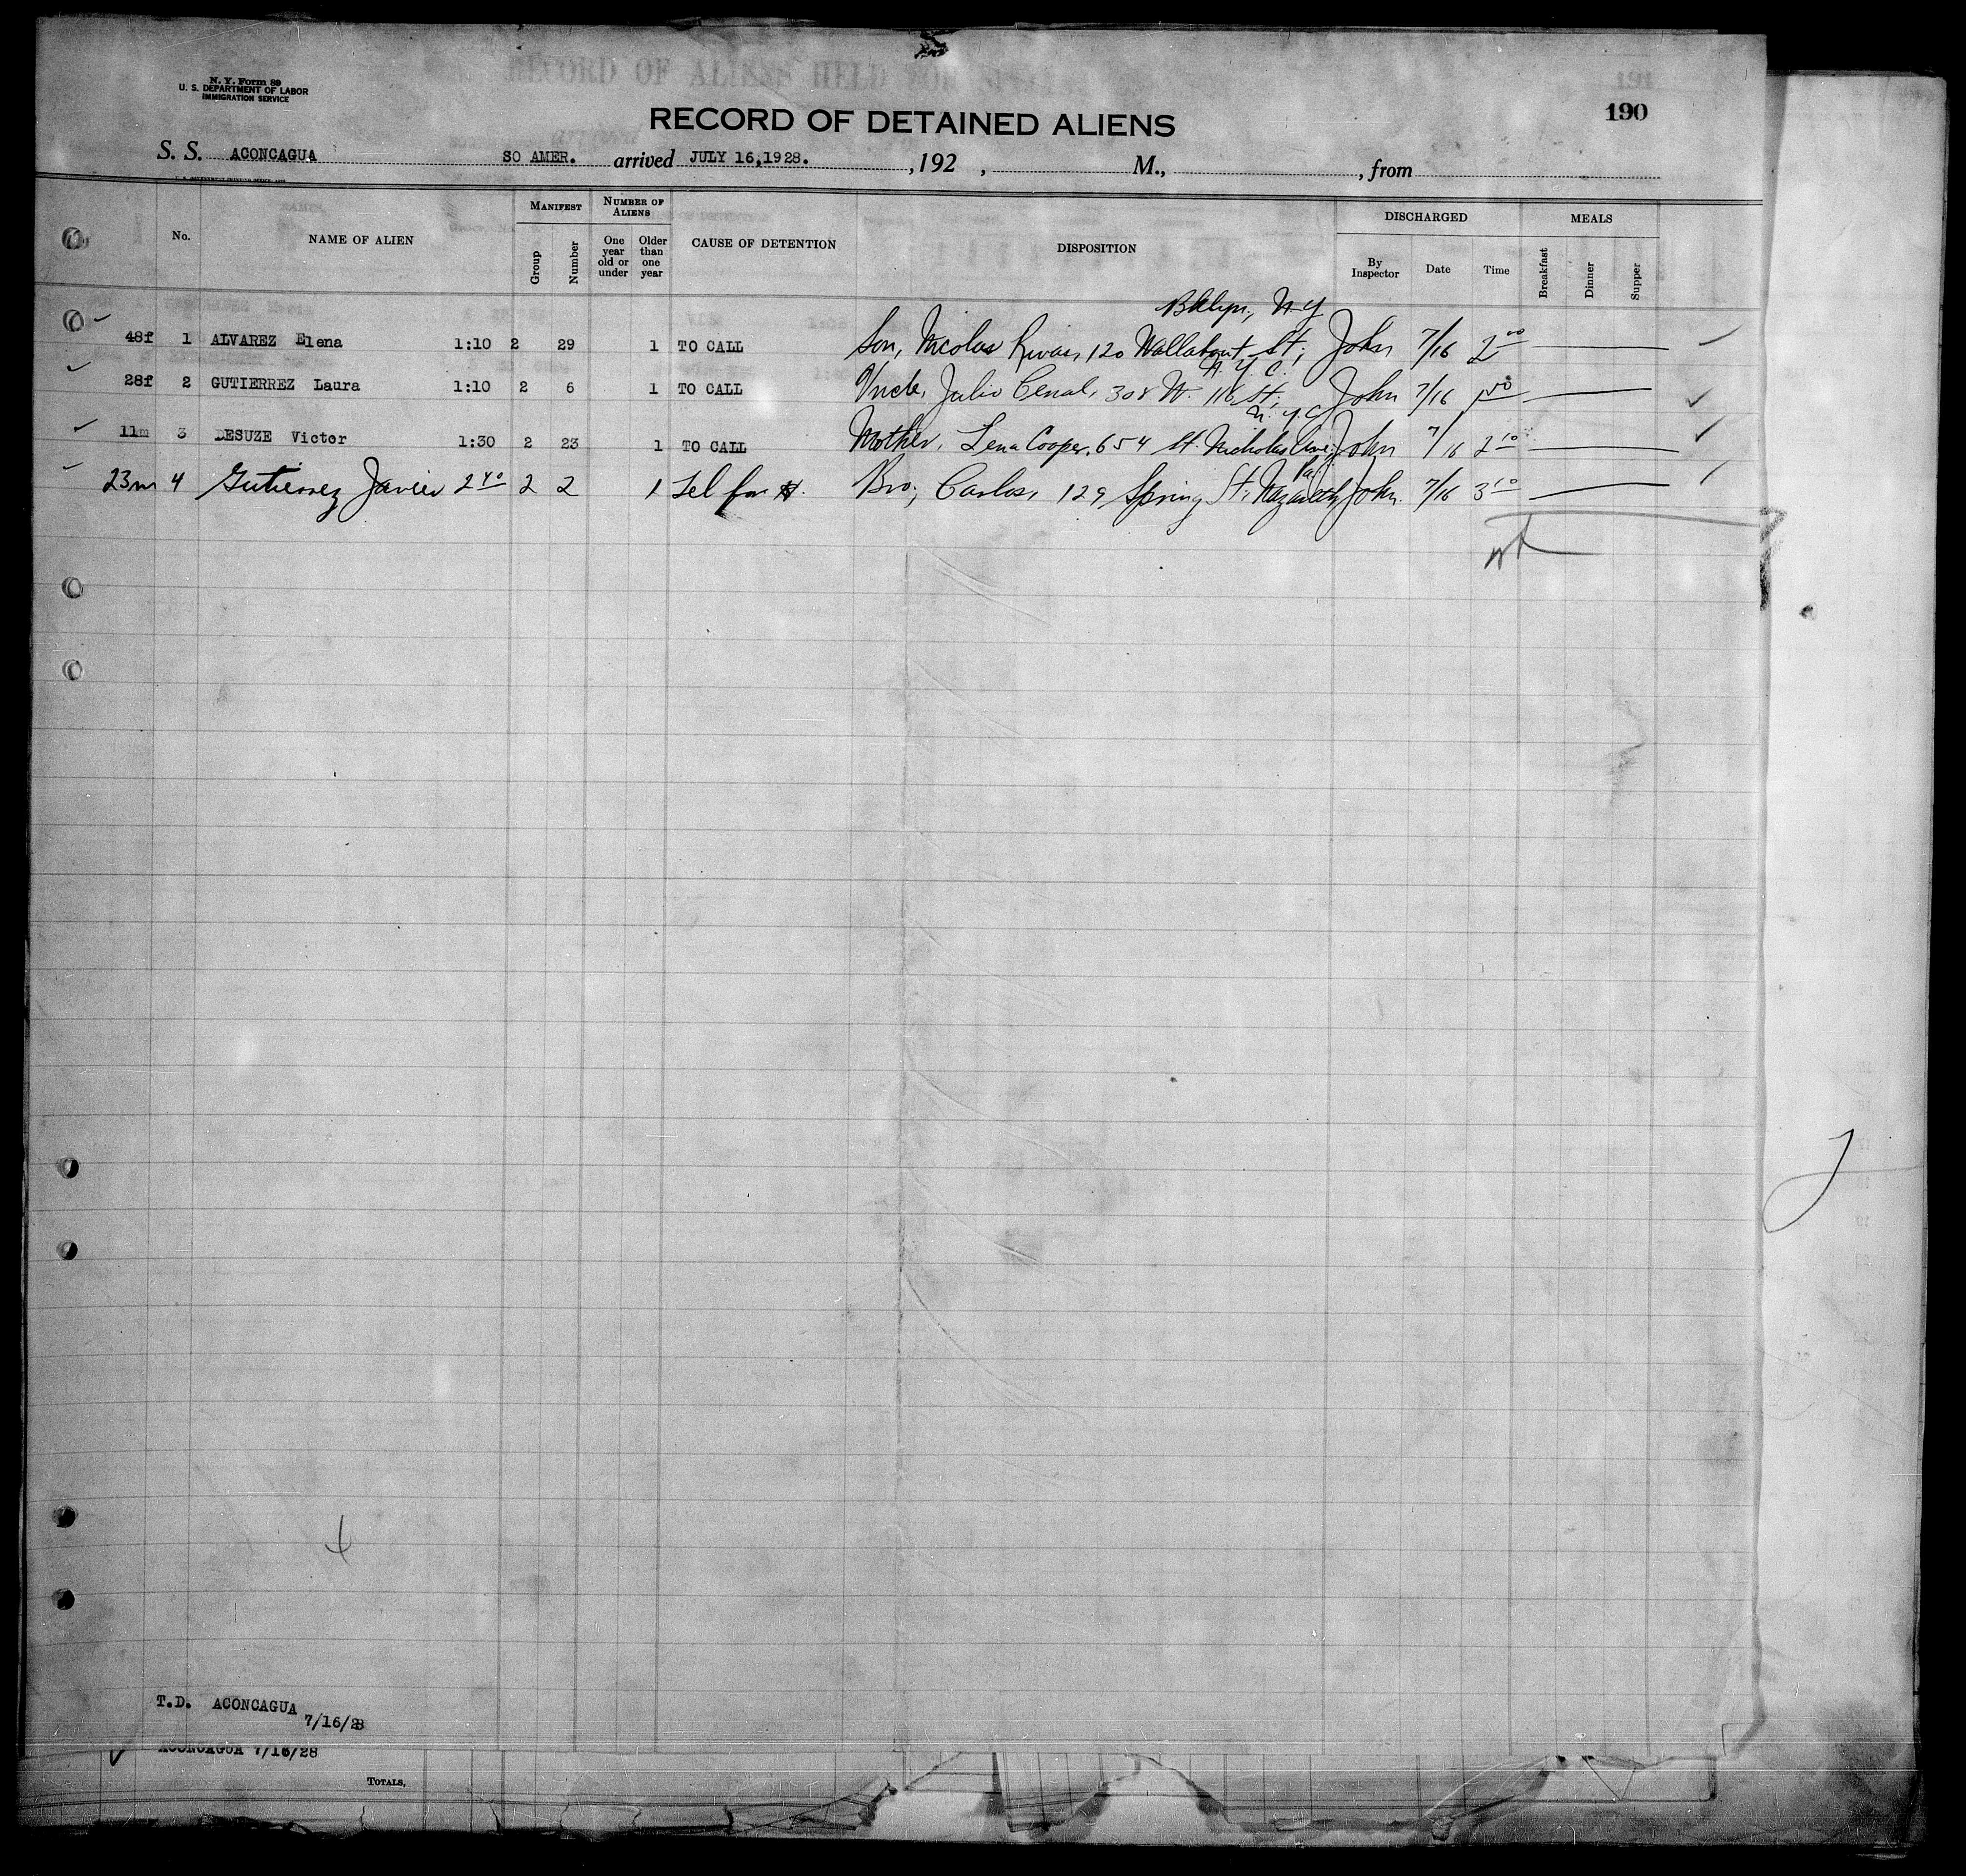 N. Y. Form 89
U. S. DEPARTMENT OF LABOR
IMMIGRATION SERVICE
RECORD OF ALIENS HELD FOR
191
190
RECORD OF DETAINED ALIENS
S. S. ACONCAGUA SO AMER. arrived JULY 16,1928. , 192 , M., , from
No. NAME OF ALIEN MANIFEST Group Number NUMBER OF ALIENS One year old or under Older than one year CAUSE OF DETENTION DISPOSITION DISCHARGED By Inspector Date Time MEALS Breakfast Dinner Supper
Bklyn, N Y
48f 1 ALVAREZ Elena 1:10 2 29 1 TO CALL Son, Nicolas Rivas, 120 Wallabout St; John 7/16 2 00
N. Y. C.
28f 2 GUTIERREZ Laura 1:10 2 6 1 TO CALL Uncle, Julio Cenal, 308 W. 116 St; John 7/16
N. Y. C
11m 3 DESUZE Victor 1:30 2 23 1 TO CALL Mother, Lena Cooper, 654 St. Nicholas Ave; John 7/16 2 10
Pa.
23m 4 Gutierrez Javier 2 40 2 2 1 Tel for $. Bro; Carlos, 129 Spring St, Nazareth John 7/16 3 10
T.D. ACONCAGUA
7/16/28
ACONCAGUA 7/16/28
TOTALS,